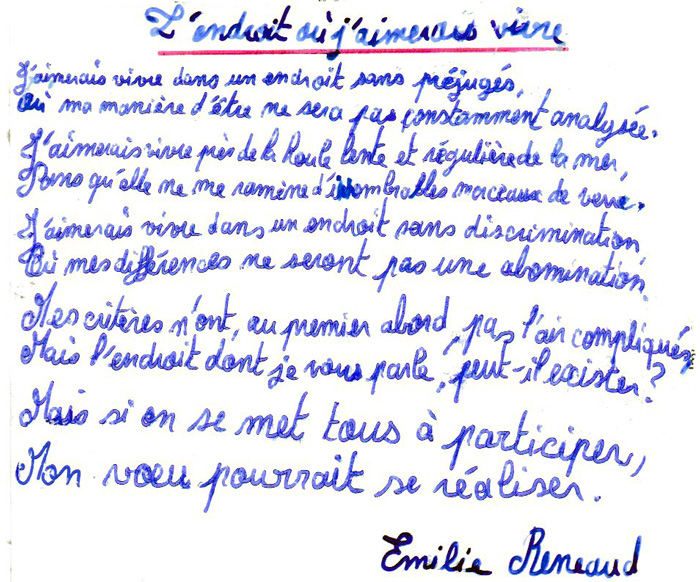 L'endroit où j'aimerais vivre
J'aimerais vivre dans un endroit sans préjugés,
Où ma manière d'être ne sera pas constamment analysée.
J'aimerais vivre près de la houle lente et régulière de la mer,
Sans qu'elle ne me ramène d'innombrables morceaux de verre.
J'aimerais vivre dans un endroit sans discrimination
Où mes différences ne seront pas une abomination.
Mes critères n'ont, au premier abord, pas l'air compliqués,
Mais l'endroit dont je vous parle, peut-il exister?
Mais si on se met tous à participer,
Mon voeu pourrait se réaliser.
Emilie Reneaud